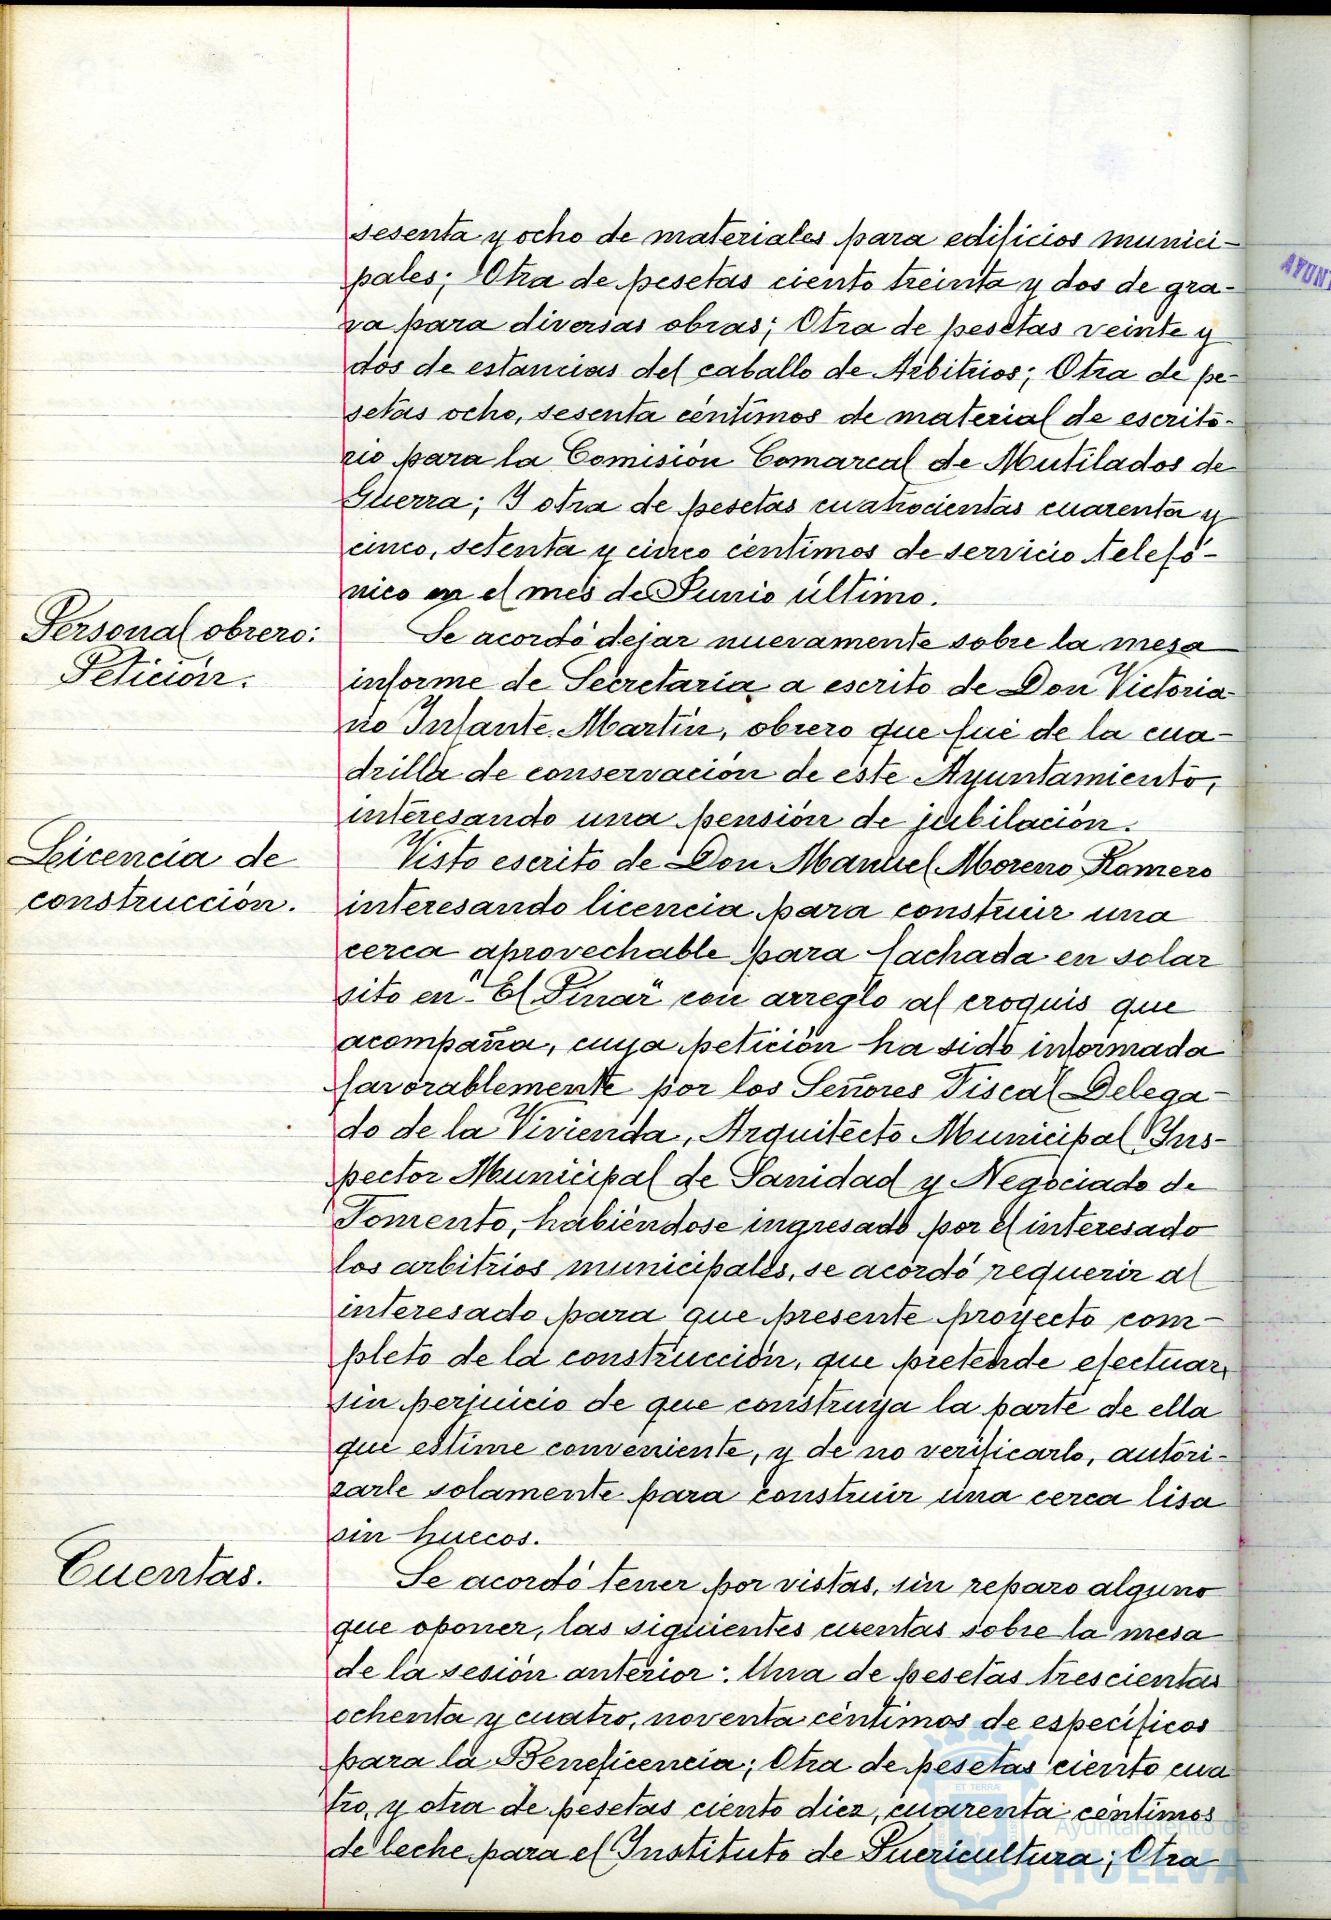 sesenta y ocho de materiales para edificios munici-
pales; Otra de pesetas ciento treinta y dos de gra-
va para diversas obras; Otra de pesetas veinte y
dos de estancias del caballo de Arbitrios; Otra de pe-
setas ocho, sesenta céntimos de material de escrito-
rio para la Comisión Comarcal de Mutilados de
Guerra; Y otra de pesetas cuatrocientas cuarenta y
cinco, setenta y cinco céntimos de servicio telefó-
nico en el mes de Junio último.
Personal obrero:
Petición.
Se acordó dejar nuevamente sobre la mesa
informe de Secretaría a escrito de Don Victoria-
no Infante Martín, obrero que fué de la cua-
drilla de conservación de este Ayuntamiento,
interesando una pensión de jubilación.
Licencia de
construcción.
Visto escrito de Don Manuel Moreno Romero
interesando licencia para construir una
cerca aprovechable para fachada en solar
sito en "El Pinar" con arreglo al croquis que
acompaña, cuya petición ha sido informada
favorablemente por los Señores Fiscal Delega-
do de la Vivienda, Arquitecto Municipal Ins-
pector Municipal de Sanidad y Negociado de
Fomento, habiéndose ingresado por el interesado
los arbitrios municipales, se acordó requerir al
interesado para que presente proyecto com-
pleto de la construcción, que pretende efectuar,
sin perjuicio de que construya la parte de ella
que estime conveniente, y de no verificarlo, autori-
zarle solamente para construir una cerca lisa
sin huecos.
Cuentas.
Se acordó tener por vistas, sin reparo alguno
que oponer, las siguientes cuentas sobre la mesa
de la sesión anterior: Una de pesetas trescientas
ochenta y cuatro, noventa céntimos de específicos
para la Beneficencia; Otra de pesetas ciento cua
tro, y otra de pesetas ciento diez, cuarenta céntimos
de leche para el Instituto de Puericultura; Otra
AYUNT
ET TERRÆ
Ayuntamiento de
HUELVA